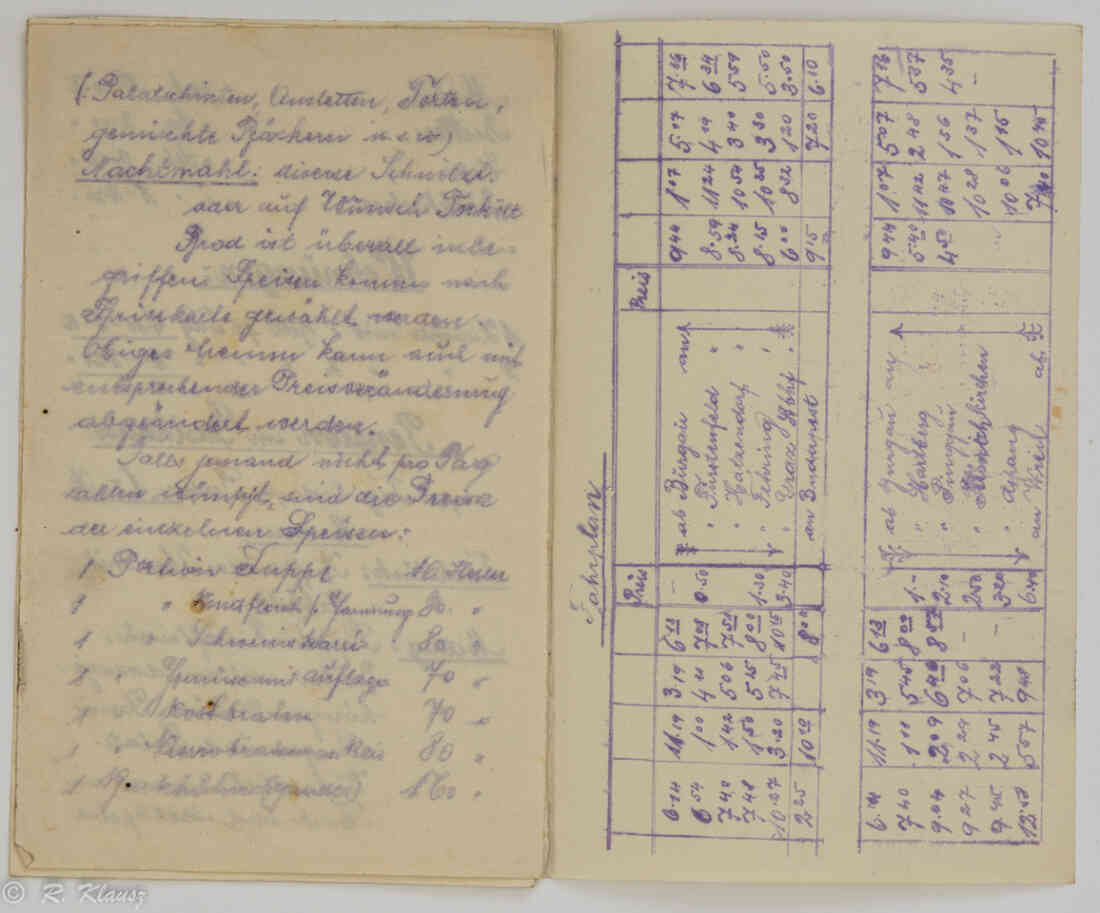 (: Palatschinken, Omletten, Torten,
gemischte Bäckerei u.s.w.)
Nachtmahl: diverse Schnitzel
oder auf Wunsch
Brod ist überall inbe-
griffen. Speisen können nach
Speiskarte gewählt werden.
Obiges Menu kann auch mit
entsprechender Preisveränderung
abgeändert werden.
Falls jemand nicht pro Tag
zahlen wünscht, sind die Preise
der einzelnen Speisen:
1 Portion Suppe 16 Heller
1 " Rindfleisch 80 "
1 Schweinsbraten 80 "
1 " Gemüse mit Auflage 70 "
1 " Rostbraten 70 "
1 " 80 "
1 Backhuhn 160 "
Fahrplan
Preis Preis
6·54 11·19 3·19 6 13 — ab Burgau an 9 44 1 07 5·07 7·16
6 54 1 00 4 11 7 08 0·50 " Fürstenfeld " 8·59 11 24 4 19 6 34
7 40 1 42 5 06 7 52 " Hatzendorf " 8·34 10 54 3 40 5 59
7 48 1 50 5 15 8 00 1·30 " Fehring " 8·15 10 25 3 30 5·50
10·27 3·20 7 45 10 15 3·40 " Graz 6 00 8 32 1 20 3·50
2 25 10 20 8 00 an Budapest 9 15 7 20 6·10
6·54 11·19 3·19 6 13 ab Burgau an 9 44 1 07 5 07 7 16
7 40 1 00 5 45 8 00 1·— " Hartberg " 5·40 11 42 2 48 5 37
9·04 2 09 6 40 8 57 2·10 " Pinggau 4 50 10 47 1 56 4 35
9 27 2 29 7 06 — 2 50 " Mönichkirchen 10 28 1 37 —
9 45 2 45 7 22 — 3 20 " Aspang 10 06 1 15
12·58 5 07 9 48 6 40 an Wien ab 7 40 10 45
© R. Klausz